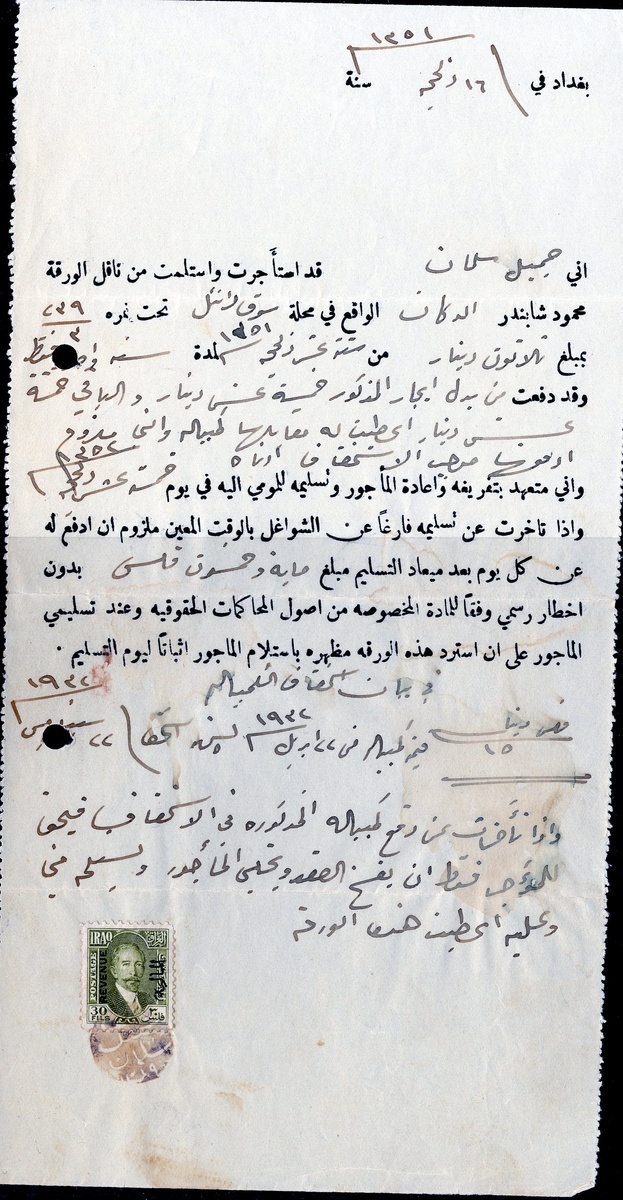 ١٣٥١
بغداد في ١٦ ذي الحجه سنة
اني جميل سلمان قد استأجرت واستلمت من ناقل الورقة
محمود شابندر الدكان الواقع في محلة سوق تحت نمره ٢٣٩
٣
بمبلغ ثلاثون دينار من ستة عشر ذي الحجه ١٣٥١ لمدة سنة واحدة فقط
وقد دفعت من بدل ايجار المذكور خمسة عشر دينار والباقي خمسة
عشر دينار اعطيت له مقابلها كمبياله واني ملزوم
ادفعها موجب الاستحقاق ادناه
واني متعهد بتفريغه وَاعادة المأجور وتسليمه للمومي اليه في يوم خمسة عشر
واذا تاخرت عن تسليمه فارغاً عن الشواغل بالوقت المعين ملزوم ان ادفع له
عن كل يوم بعد ميعاد التسليم مبلغ ماية وخمسون فلس بدون
اخطار رسمي وفقاً للمادة المخصوصه من اصول المحاكمات الحقوقيه وعند تسليمي
الماجور على ان استرد هذه الورقه مظهره باستلام الماجور اثباتاً ليوم التسليم .
في بيان استحقاق الكمبياله
١٩٣٢
دينار
١٥ قيمة كمبياله في ٢٢ ابريل ١٩٣٢ ٢٢
واذا تأخرت عن دفع كمبياله المذكوره في الاستحقاق فيحق
للمؤجر فقط ان يفسخ العقد ويخلي المأجور ويستلم مني
وعليه اعطيت هذه الورقه
IRAQ العراق
POSTAGE
REVENUE
30 FILS ٣٠ فلس